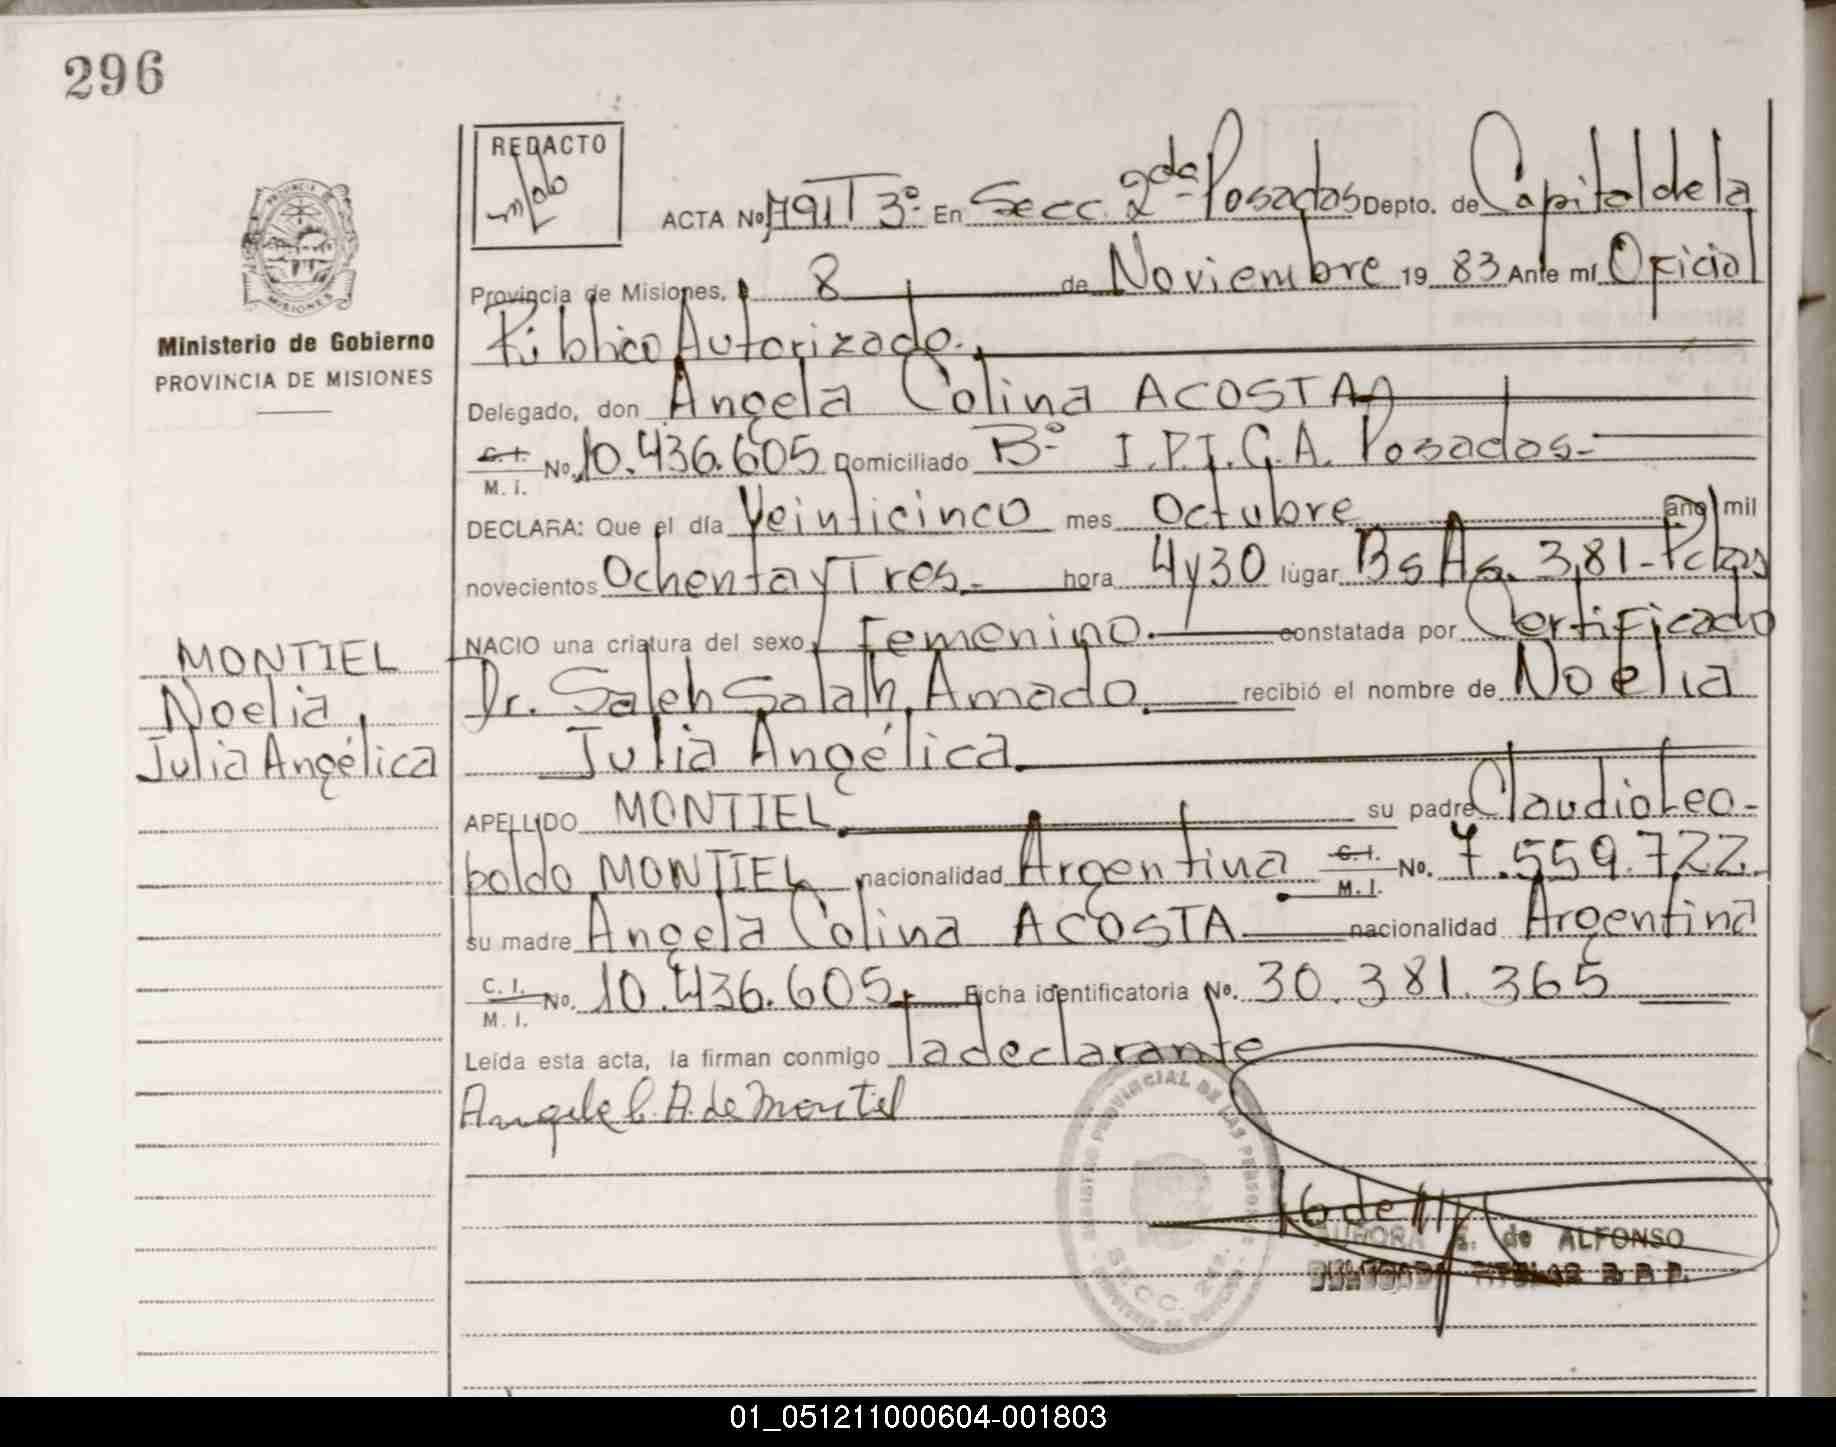 296
REDACTO
ACTA No 791 T 3º En Secc. 2da Posadas Depto. de Capital de la
Provincia de Misiones, 8 de Noviembre 19 83 Ante mí Oficial
Público Autorizado.
Ministerio de Gobierno
PROVINCIA DE MISIONES
Delegado, don Angela Colina ACOSTA
C. I. M. I. No. 10.436.605 Domiciliado Bº I.P.T.C.A. Posadas.-
DECLARA: Que el día Veinticinco mes Octubre año mil
novecientos Ochenta y Tres.- hora 4 y 30 lugar Bs As. 381- Pdas
NACIO una criatura del sexo Femenino. constatada por Certificado
Dr. Saleh Salah, Amado. recibió el nombre de Noelia
Julia Angélica.
MONTIEL
Noelia,
Julia Angélica
APELLIDO MONTIEL su padre Claudio Leo-
poldo MONTIEL nacionalidad Argentina C. I. M. I. No. 7.559.722.
su madre Angela Colina ACOSTA nacionalidad Argentina
C. I. M. I. No. 10.436.605. Ficha identificatoria No. 30.381.365
Leída esta acta, la firman conmigo la declarante
Angela C. A. de Montiel
REGISTRO PROVINCIAL DE LAS PERSONAS
SECC. 2da.
6 de
AURORA E. de ALFONSO
DELEGADA TITULAR R. P. P.
01_051211000604-001803